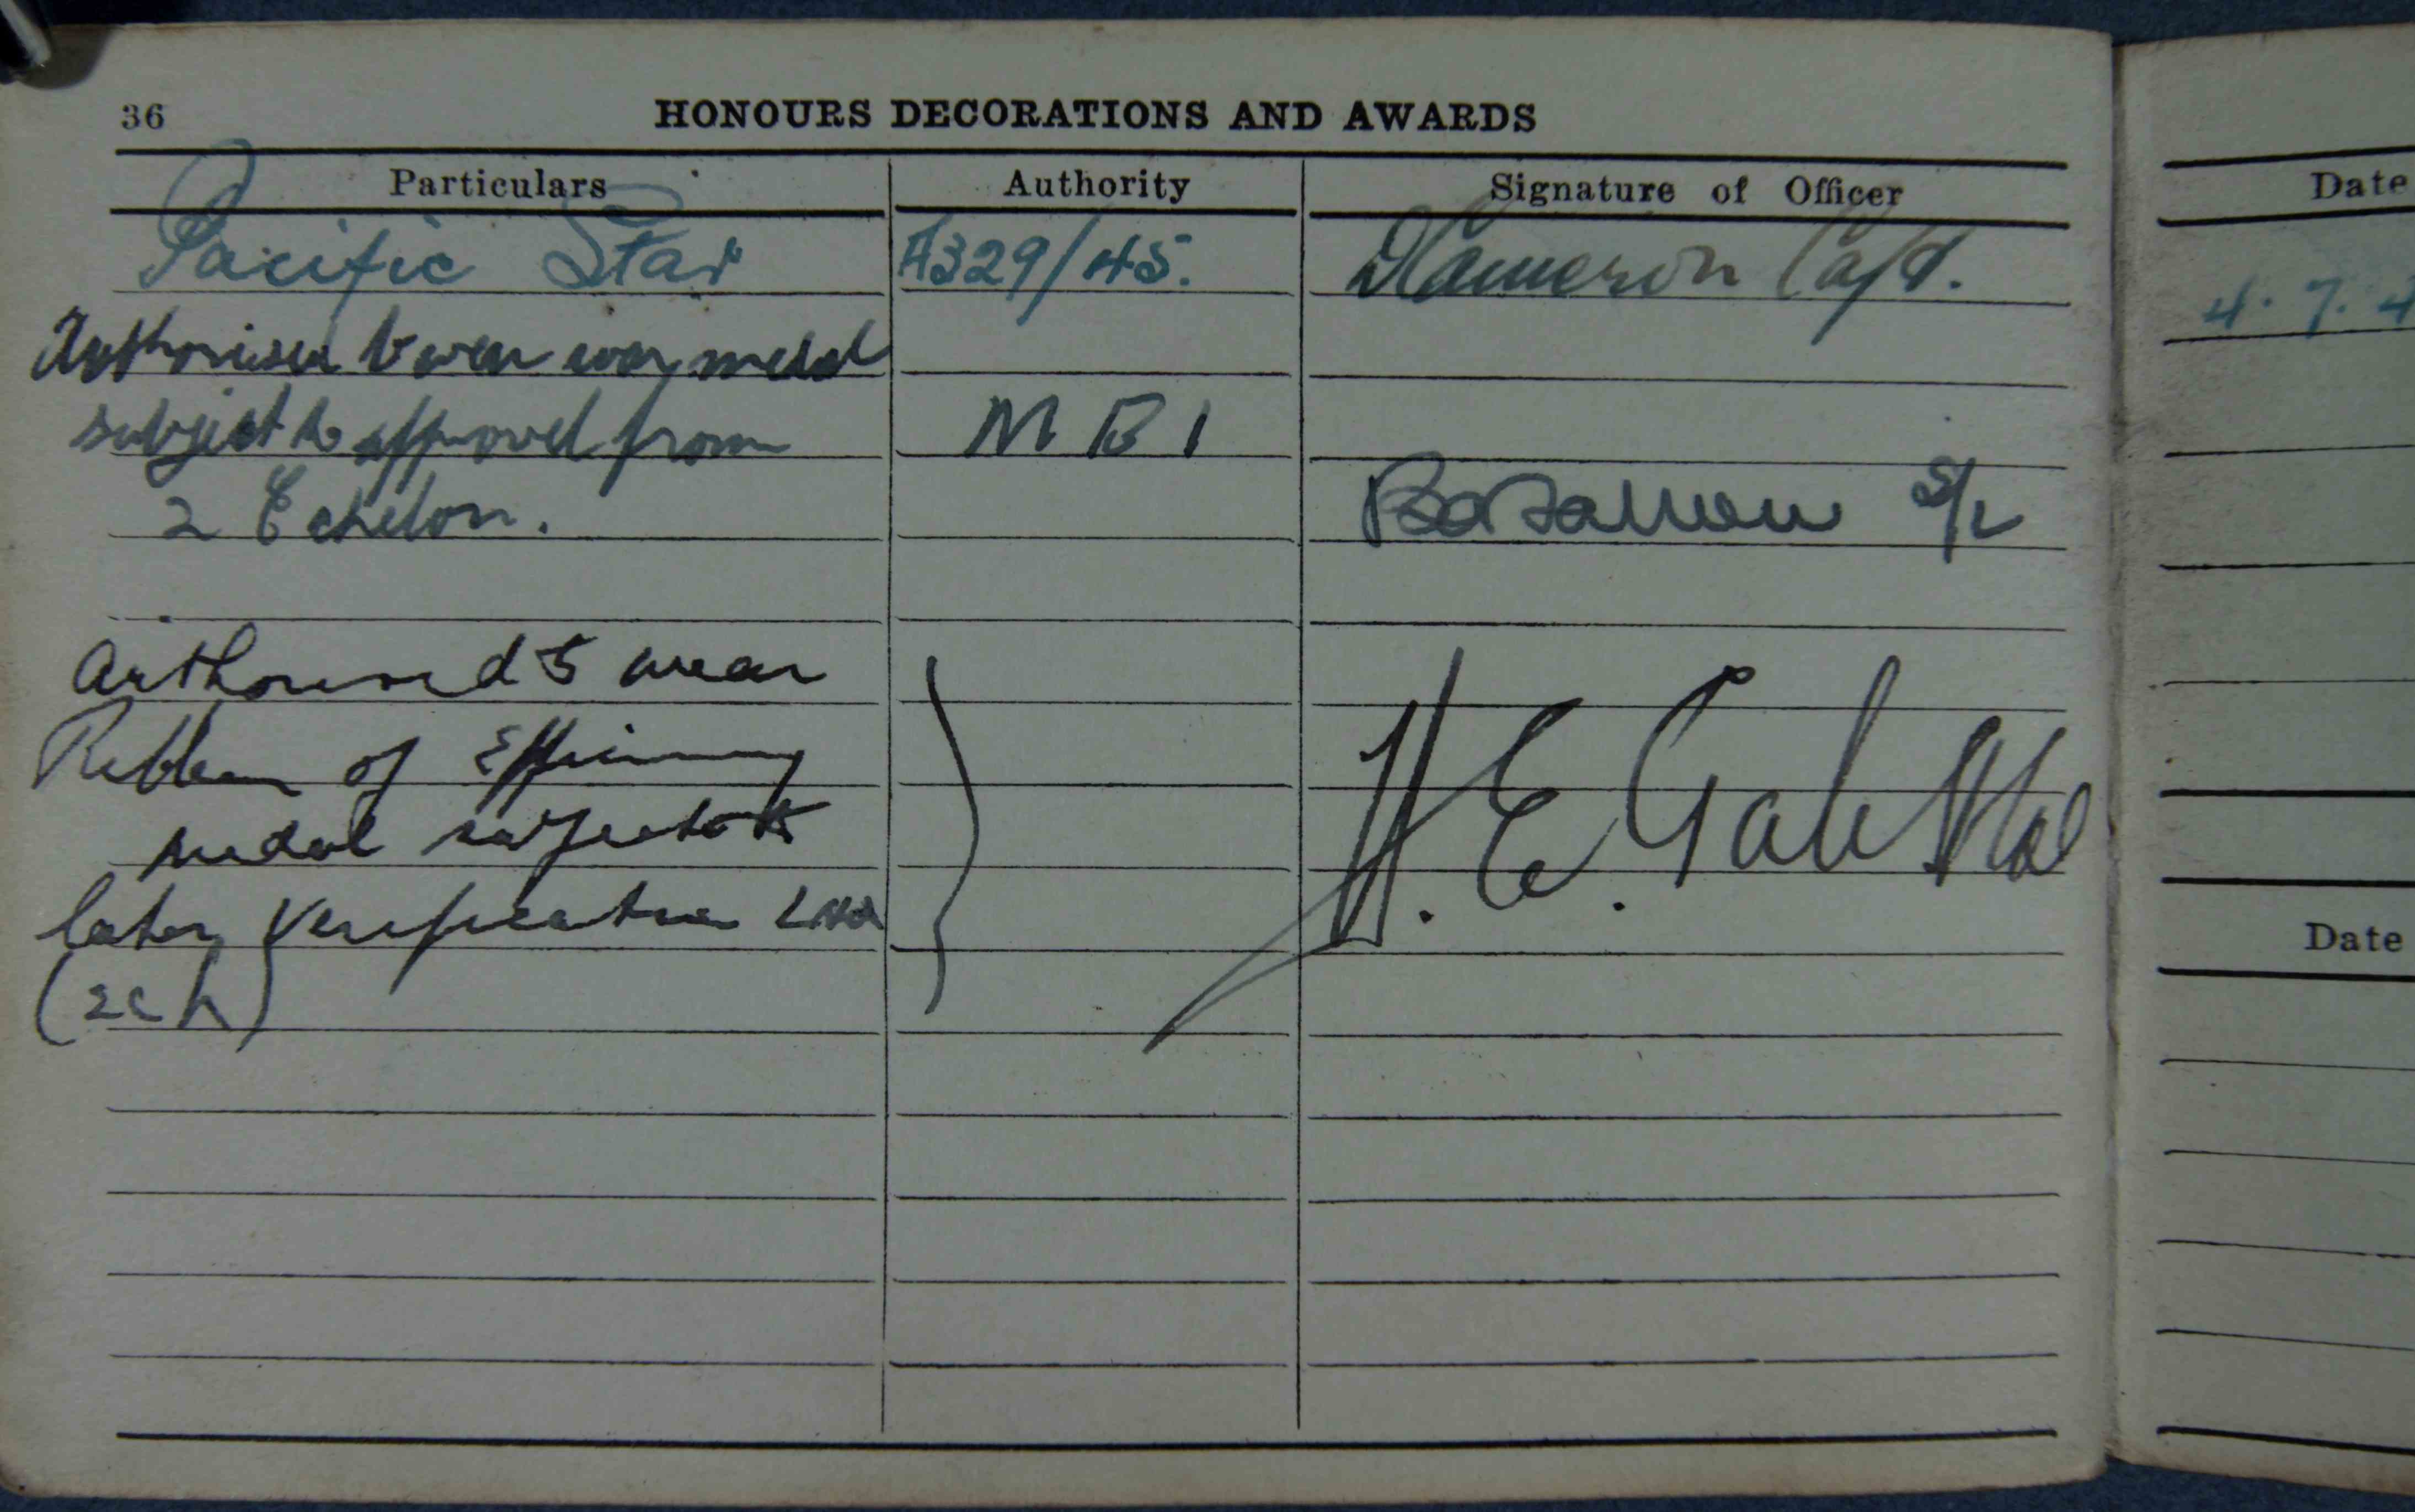 36 HONOURS DECORATIONS AND AWARDS
Particulars Authority Signature of Officer Date
Pacific Star A329/45. DCameron Capt. 4. 7. 4
Authorised to wear war medal
subject to approval from M B 1
2 Echelon.
authorised to wear
Ribbon of Efficiency
medal subject to
later verification
(2 Ech)
H. E. Gale
Date